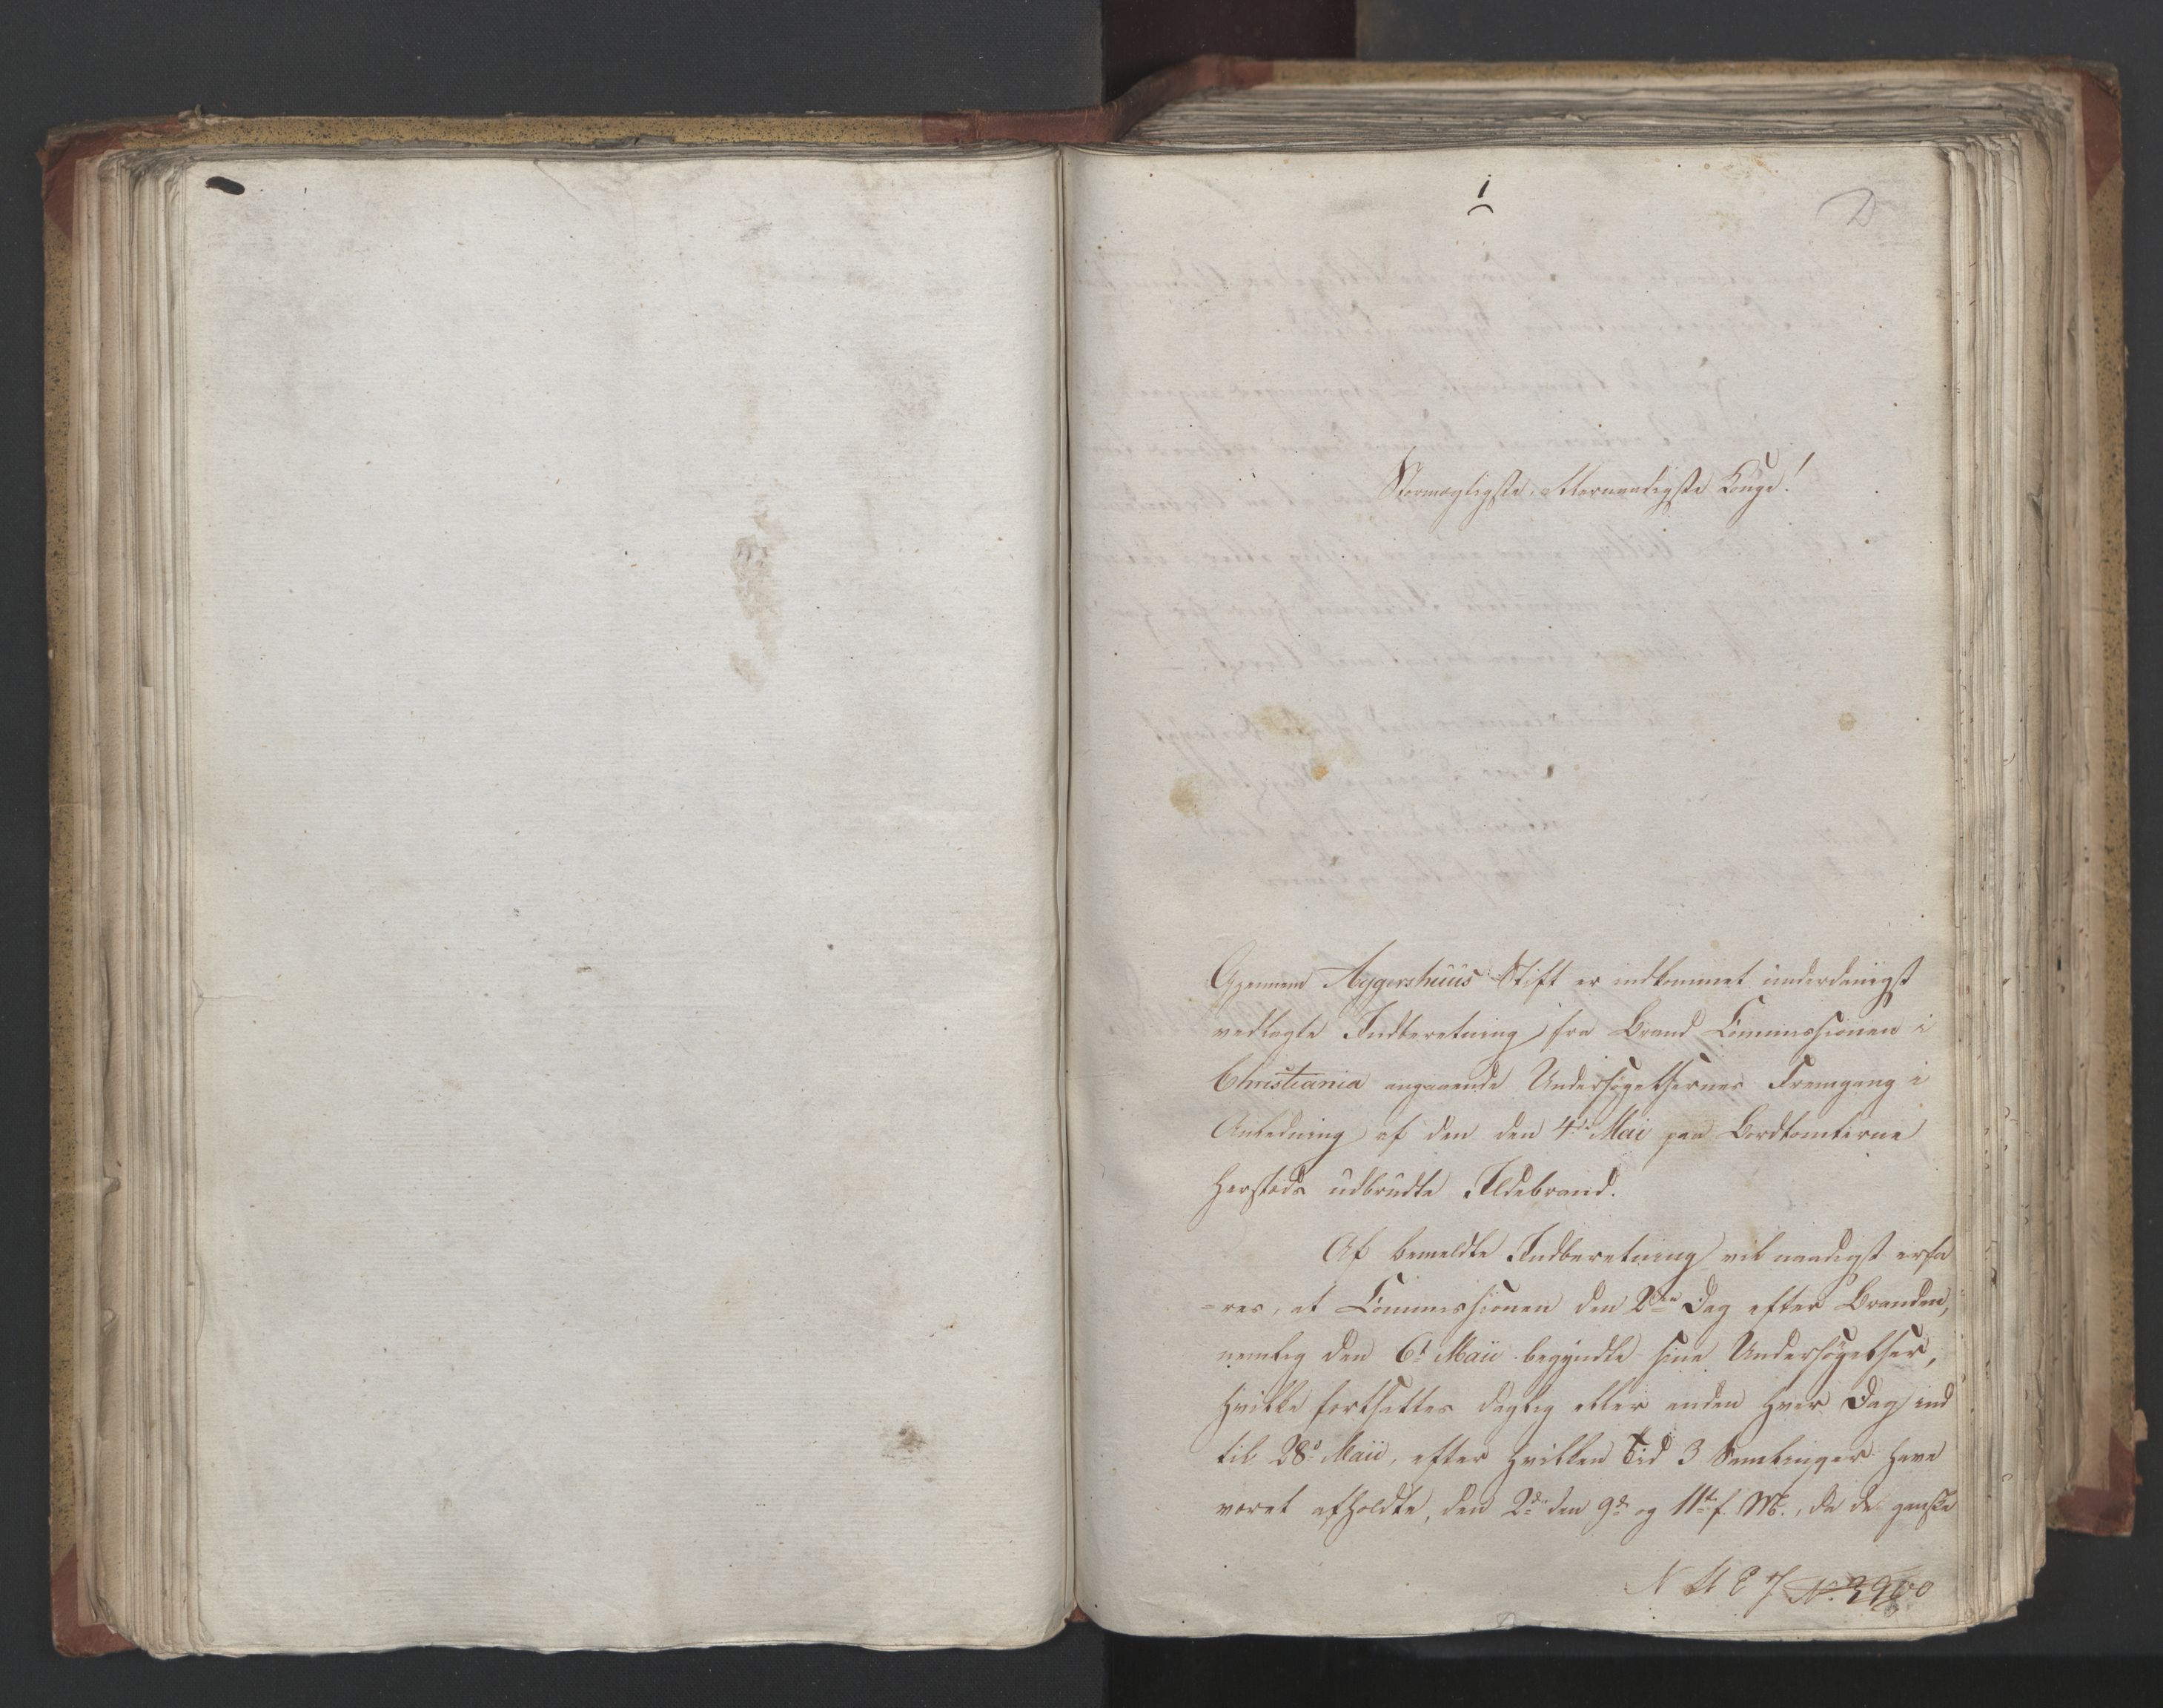 1
D
Stormægtigste, allernaadigste Konge!
Gjennem Aggershuus Stift er indkommet underdanigst
vedlagte Indberetning fra Brand Commissionen i
Christiania angaaende Undersøgelsernes Fremgang i
Anledning af den den 4de Mai paa Bordtomterne
hersteds udbrudte Ildebrand.
Af bemeldte Indberetning vil naadigst erfa
=res, at Commissionen den 2den Dag efter Branden,
nemlig den 6t Maii begyndte sine Undersøgelser,
hvilke fortsattes daglig eller anden hver Dag ind
til 28d Maii, efter hvilken Tid 3 Samlinger have
været afholdte, den 2den den 9de og 11te f. M., da de ganske